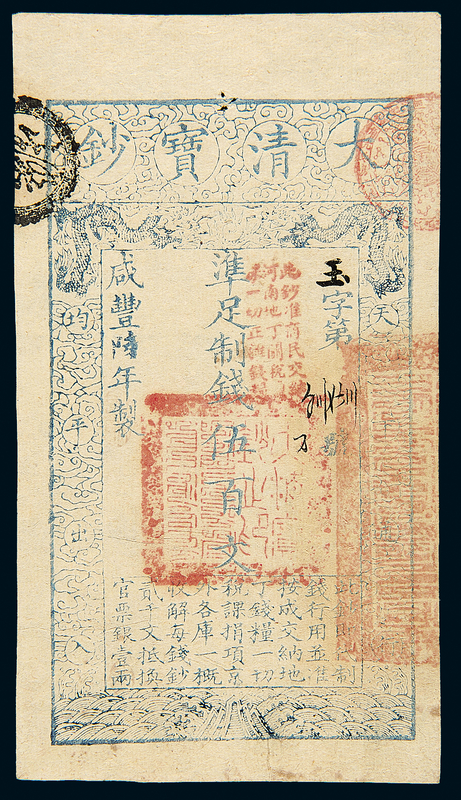 大清寶鈔
天
玉字第
號
準足制錢伍百文
咸豐陸年製
均平出入
此鈔准商民交納
河南地丁關稅
一切正雜錢
此鈔即代制
錢行用並准
按成交納地
丁錢糧一切
稅課捐項京
外各庫一概
收解每錢鈔
貳千文抵換
官票銀壹兩